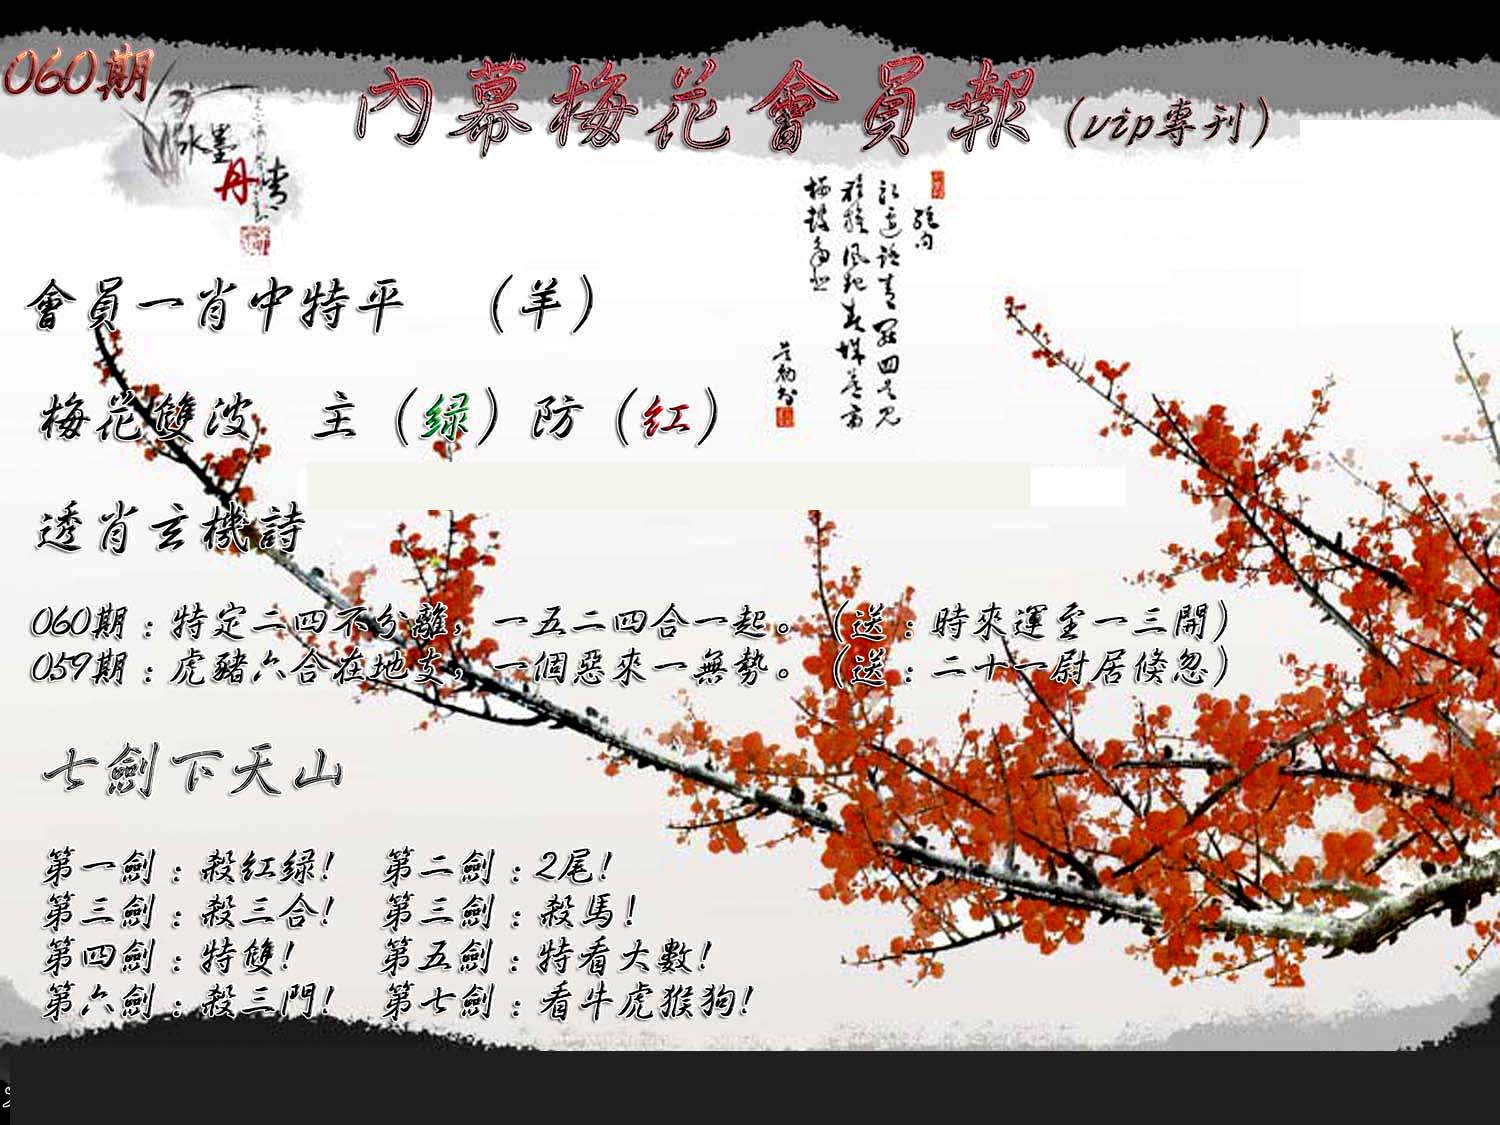 060期
內幕梅花會員報(vip專刊)
水墨
丹青
會員一肖中特平 (羊)
梅花雙波 主(绿)防(红)
透肖玄機詩
060期:特定二四不分離,一五二四合一起。(送:時來運至一三開)
059期:虎豬六合在地支,一個惡來一無勢。(送:二十一尉居倏忽)
七劍下天山
第一劍:殺紅绿! 第二劍:2尾!
第三劍:殺三合! 第三劍:殺馬!
第四劍:特雙! 第五劍:特看大數!
第六劍:殺三門! 第七劍:看牛虎猴狗!